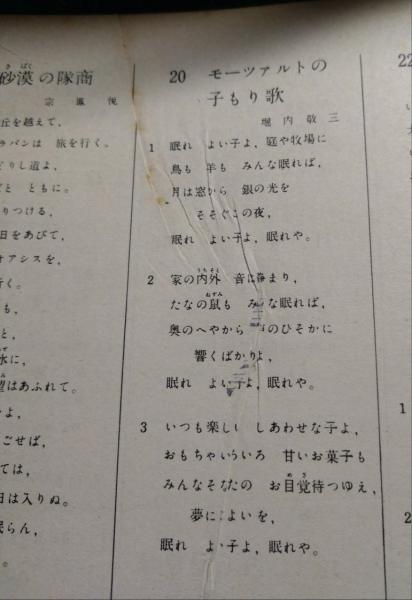 砂漠の隊商
宗 鳳 悦
丘を越えて,
ラバンは 旅を行く。
どりし道よ,
ともに。
りつける,
日をあびて,
オアシスを,
行く。
も,
と,
水に,
望はあふれて。
よ,
ごせば,
ては,
日は入りぬ。
眠らん,
。
20 モーツァルトの
子もり歌
堀内敬三
1 眠れ よい子よ, 庭や牧場に
鳥も 羊も みんな眠れば,
月は窓から 銀の光を
そそぐこの夜,
眠れ よい子よ, 眠れや。
2 家の内外 音は静まり,
たなの鼠も みんな眠れば,
奥のへやから のひそかに
響くばかりよ,
眠れ よい子よ, 眠れや。
3 いつも楽しい しあわせな子よ,
おもちゃいろいろ 甘いお菓子も
みんなそなたの お目覚待つゆえ,
夢にこよいを,
眠れ よい子よ, 眠れや。
22
1
2